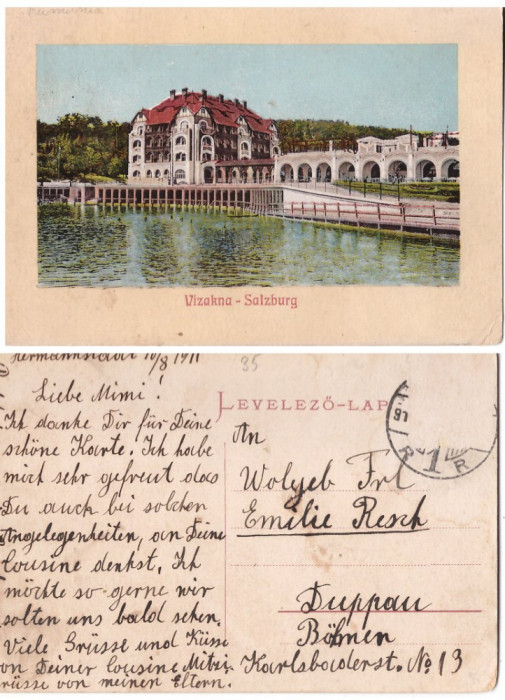 Rumänia
Vizakna - Salzburg
Hermannstadt 10/8 1911
35
Liebe Mimi!
LEVELEZŐ-LAP
Ich danke Dir für Deine
schöne Karte. Ich habe
mich sehr gefreut das
Du auch bei solchen
Angelegenheiten, an Deine
Cousine denkst. Ich
möchte so gerne wir
solten uns bald sehen.
Viele Grüsse und Küsse
von Deiner Cousine
Grüsse von meinen Eltern.
An
Wolgeb Frl
Emilie Resch
Duppau
Böhmen
Karlsbaderst. No 13
1